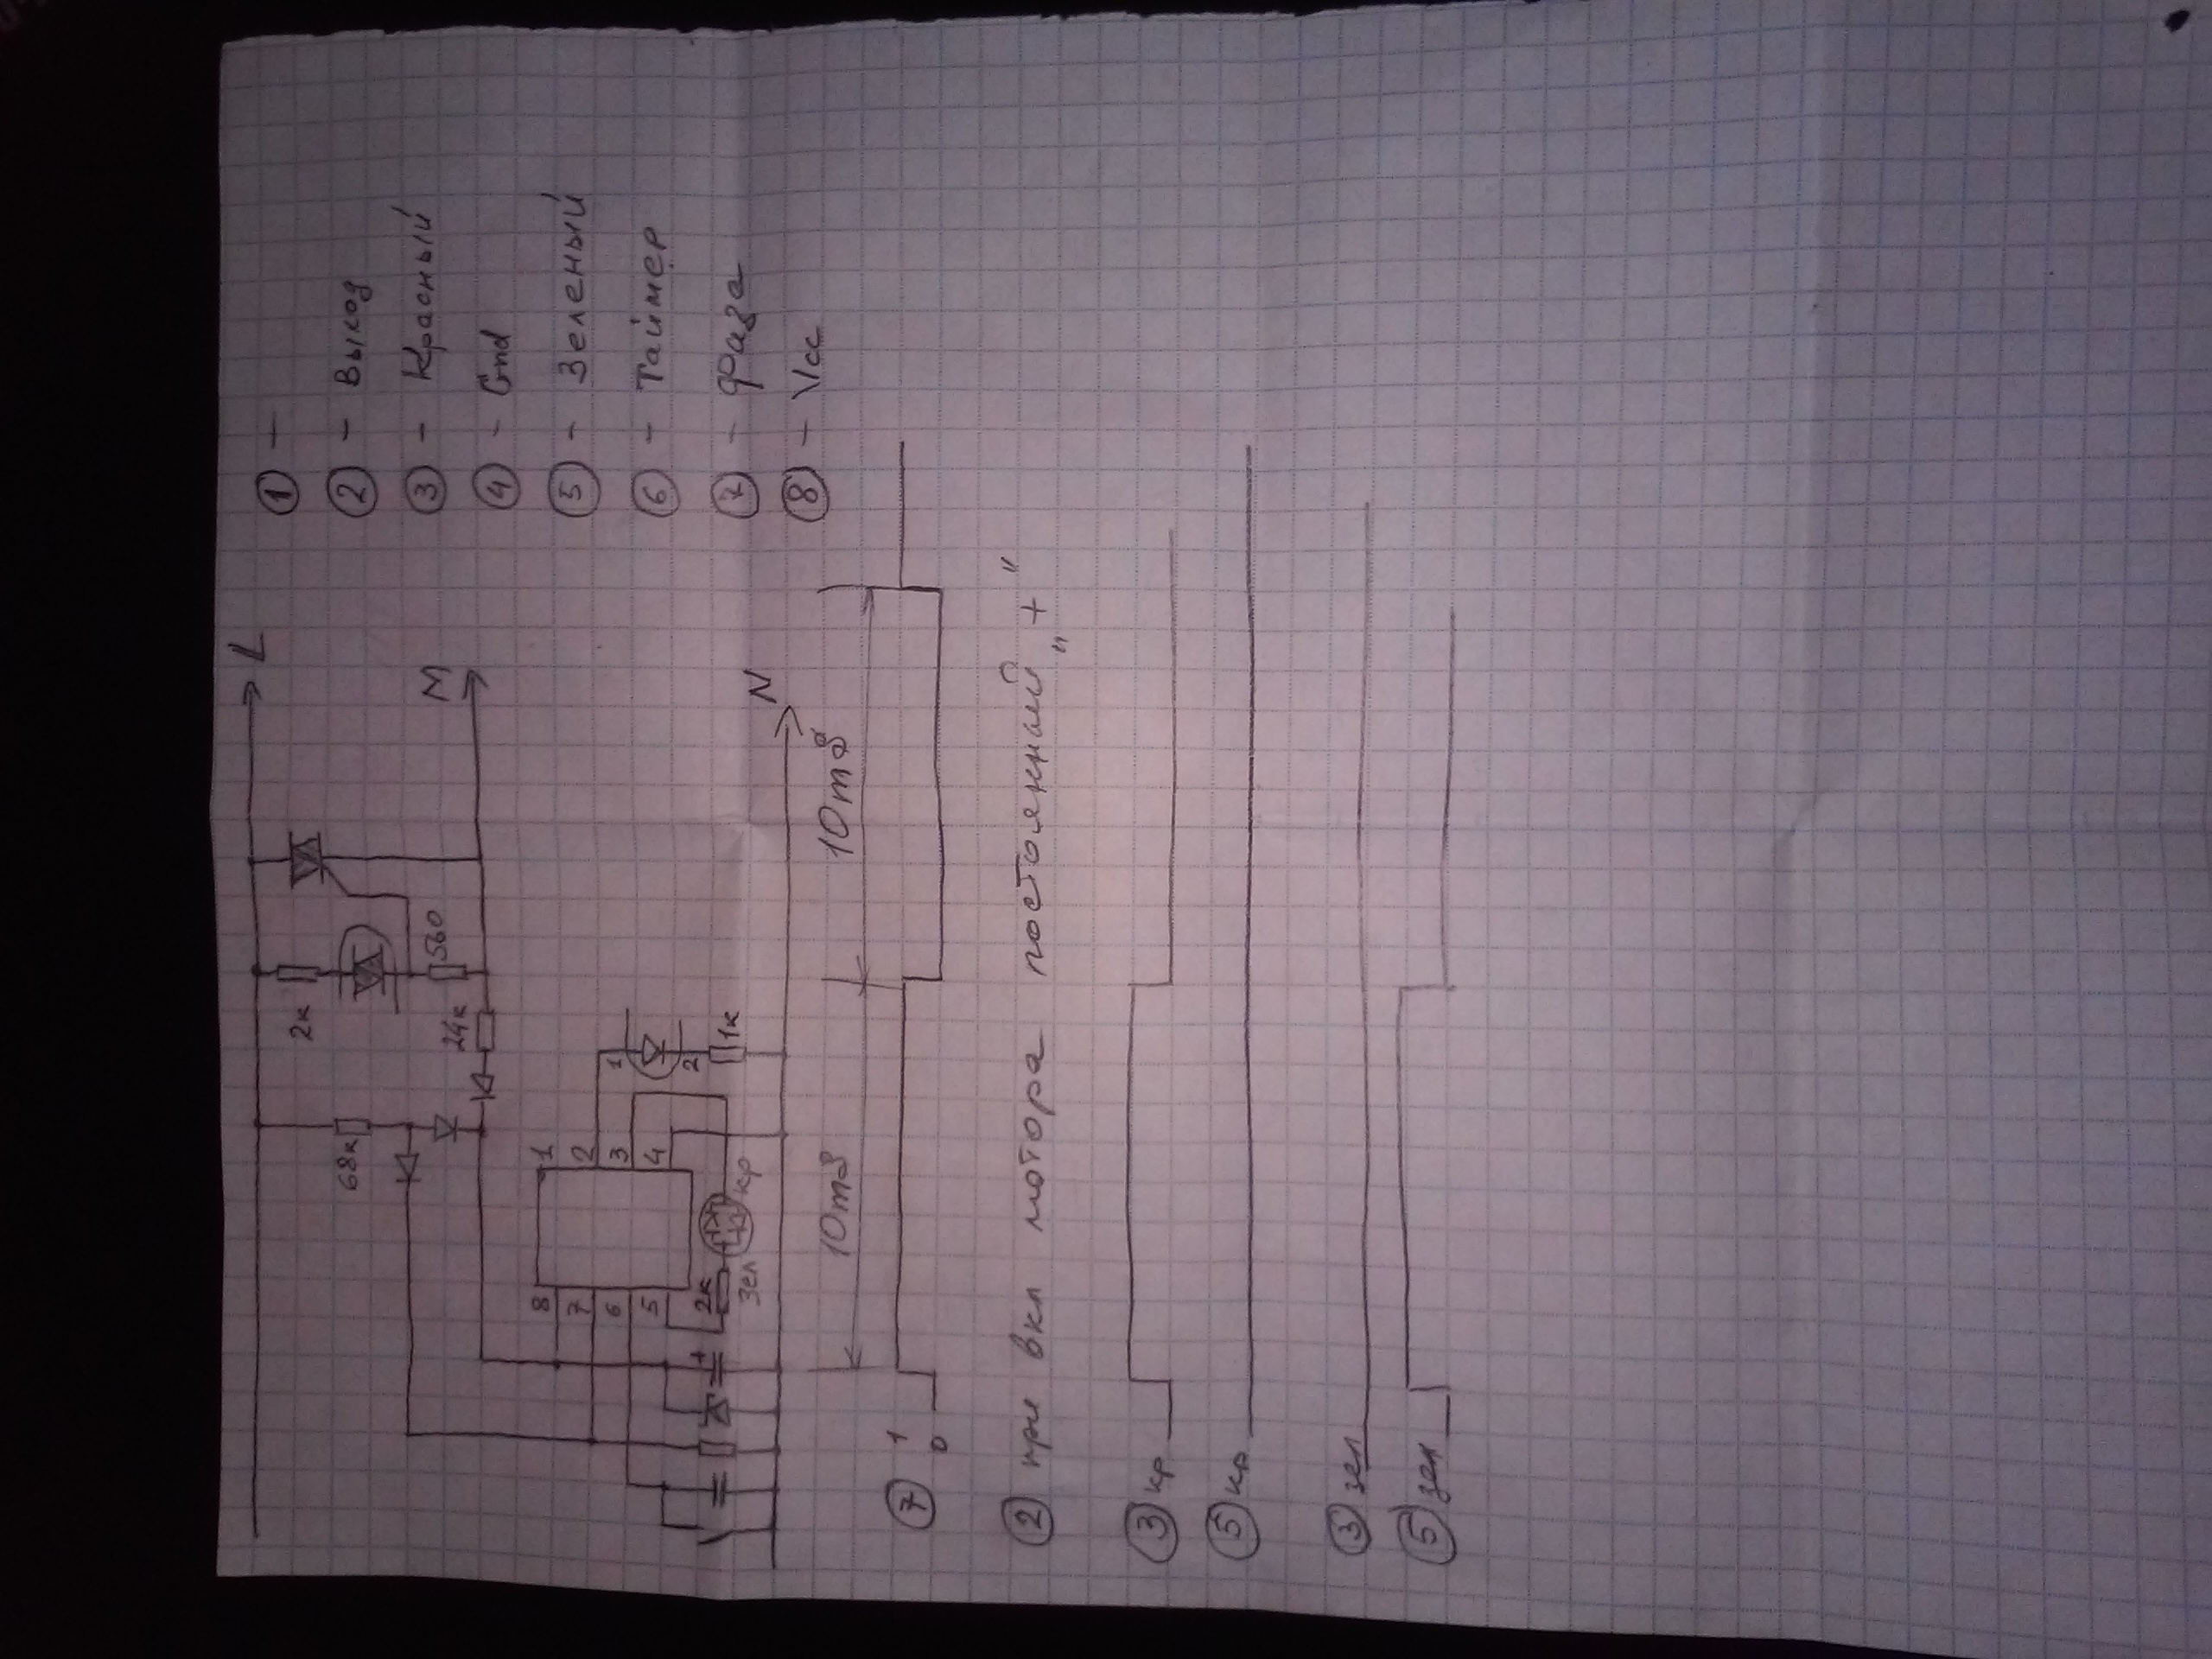 L
2к
68к
560
M
24к
8
1
7
2
6
3
1
5
4
2
2к
1к
Зел
кр
N
① –
② – Выход
③ – Красный
④ – Gnd
⑤ – Зеленый
⑥ – Таймер
⑦ – Фаза
⑧ – Vcc
10mS 10mS
⑦ 1
0
② при вкл мотора постоянный „+“
③ кр
⑤ кр
③ зел
⑤ зел